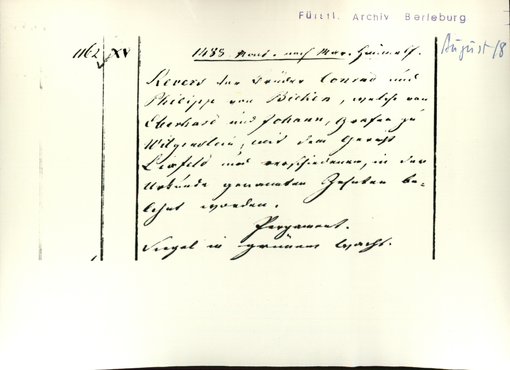 Fürstl. Archiv Berleburg
August 18
1162 XV 1483. Mont. nach Mar. Himmelf.
Revers der Brüder Conrad und
Philipp von Bicken, welche von
Eberhard und Johann, Grafen zu
Witgenstein, mit dem Gericht
und verschiedenen, in der
Urkunde genannten Zehnten be-
lehnt worden.
Pergament.
Siegel in grünem Wachs.